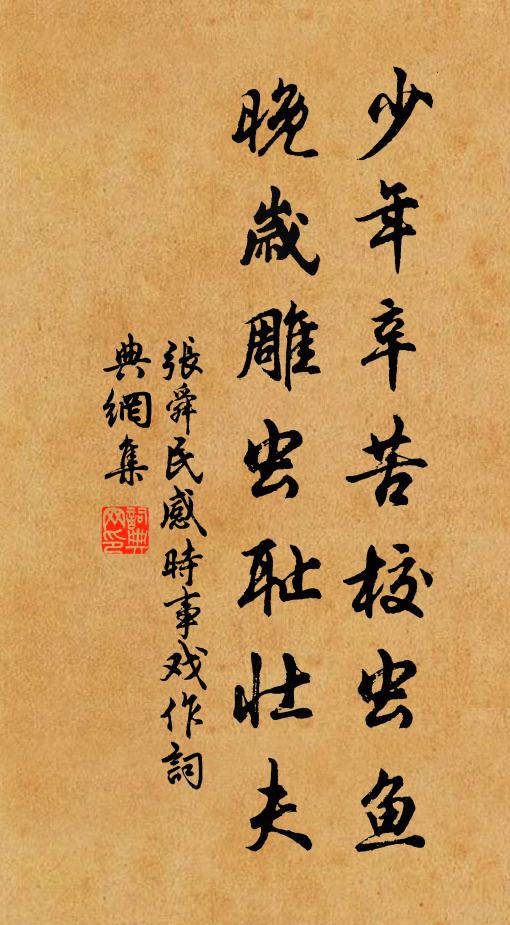 少年辛苦校虫鱼
晚歲雕虫耻壮夫
張舜民感時事戏作詞
典網集
詞典网印